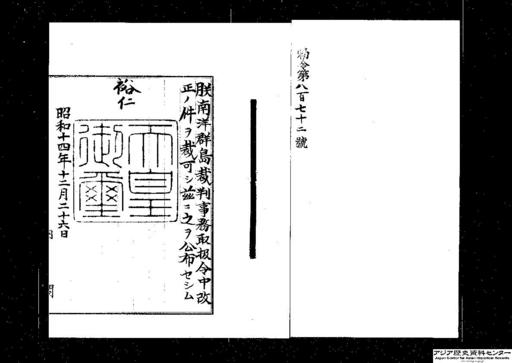 勅令第八百七十二號
朕南洋群島裁判事務取扱令中改
正ノ件ヲ裁可シ茲ニ之ヲ公布セシム
裕仁
天皇
御璽
昭和十四年十二月二十六日
内閣
アジア歴史資料センター
Japan Center for Asian Historical Records